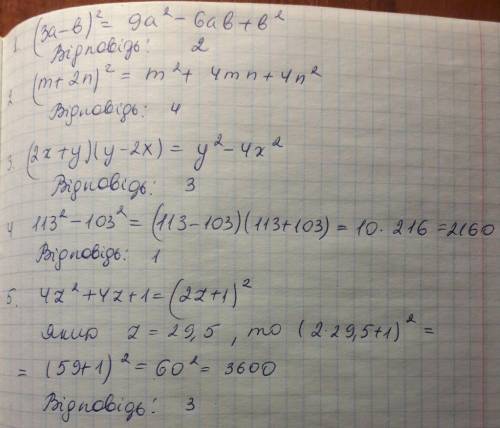 1. (3a-b)² = 9a² - 6ab + b²
Відповідь: 2
2. (m+2n)² = m² + 4mn + 4n²
Відповідь: 4
3. (2x+y)(y-2x) = y² - 4x²
Відповідь: 3
4. 113² - 103² = (113-103)(113+103) = 10 · 216 = 2160
Відповідь: 1
5. 4z² + 4z + 1 = (2z+1)²
якщо z = 29,5, то (2·29,5+1)² =
= (59+1)² = 60² = 3600
Відповідь: 3